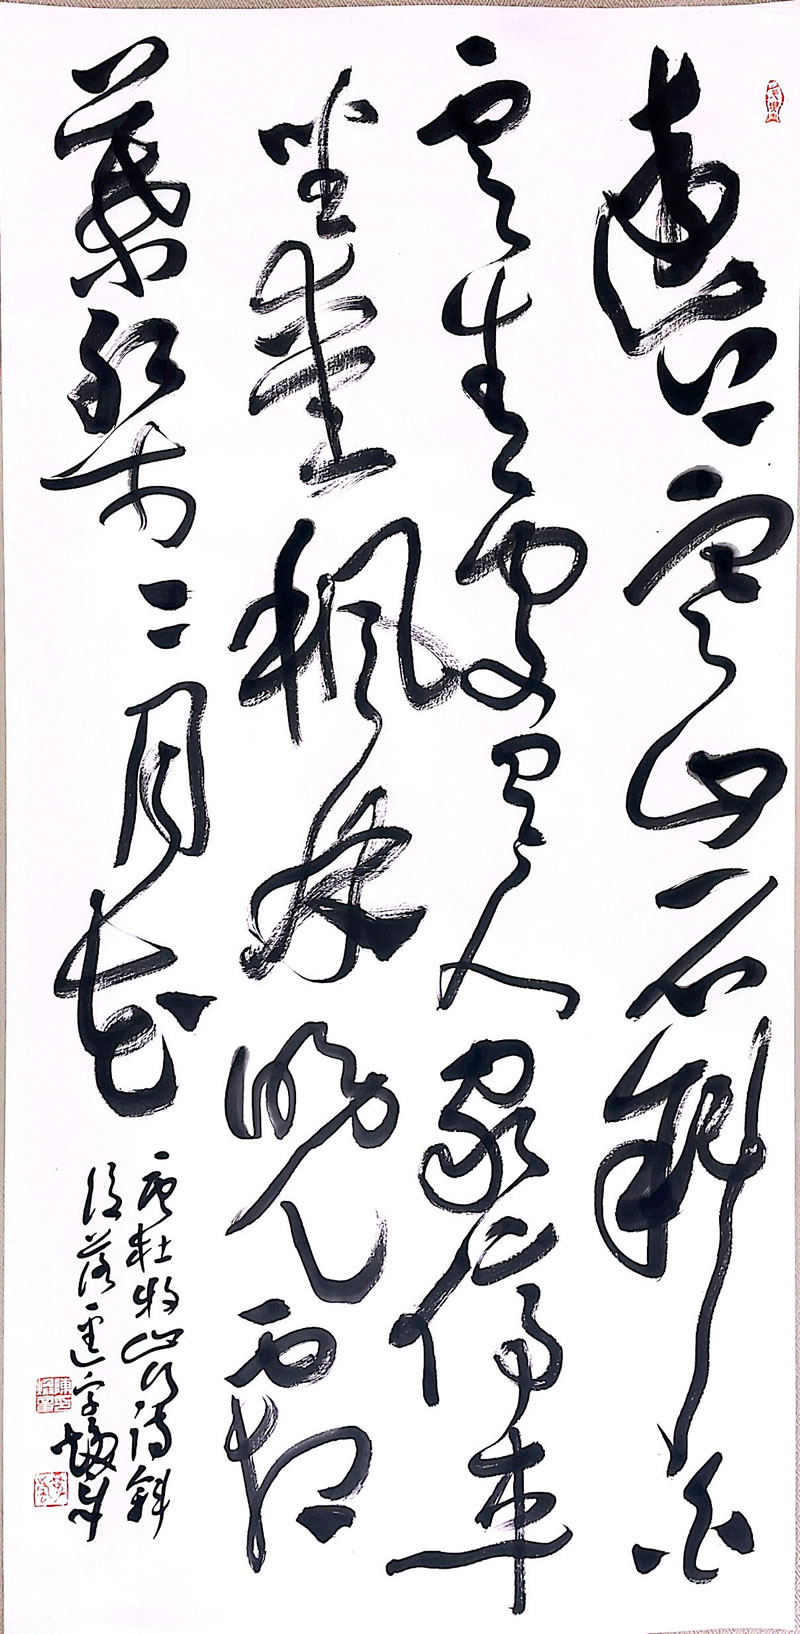 遠上寒山石斜白
雲生處人家停車
坐愛楓林晚霜
葉紅於二月花
唐杜牧山行詩斜
後落逕字